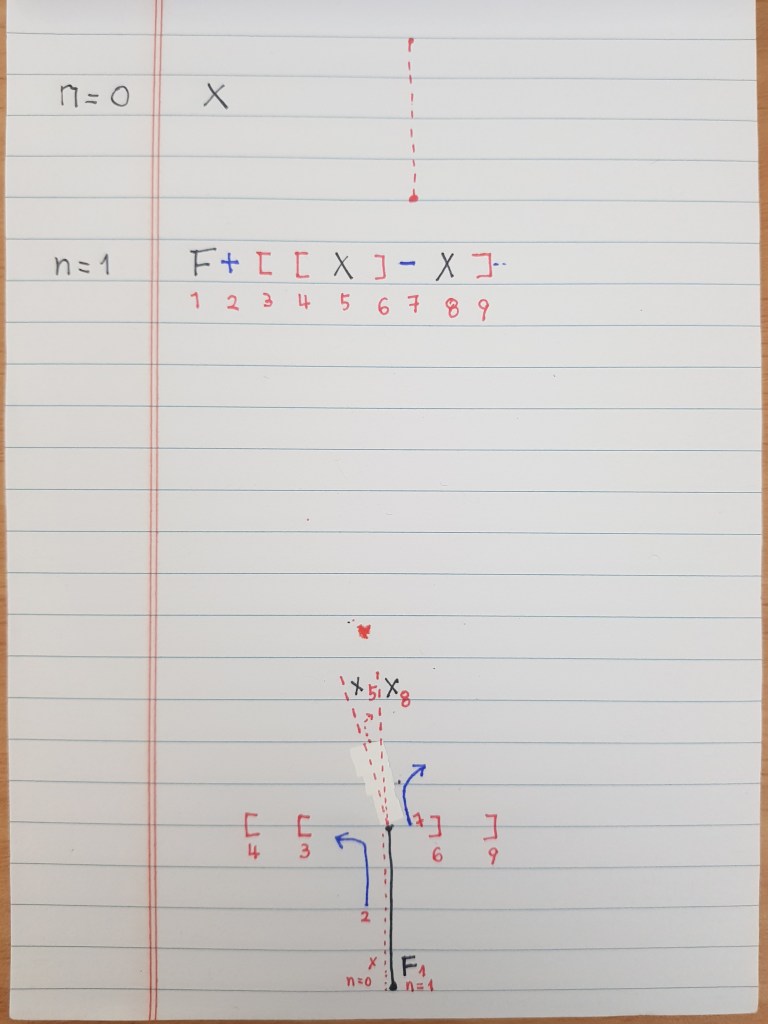 n=0 X
n=1 F+[[X]-X]--
1 2 3 4 5 6 7 8 9
X 5 X 8
[ [ 7 ] ]
4 3 6 9
2
X F1
n=0 n=1